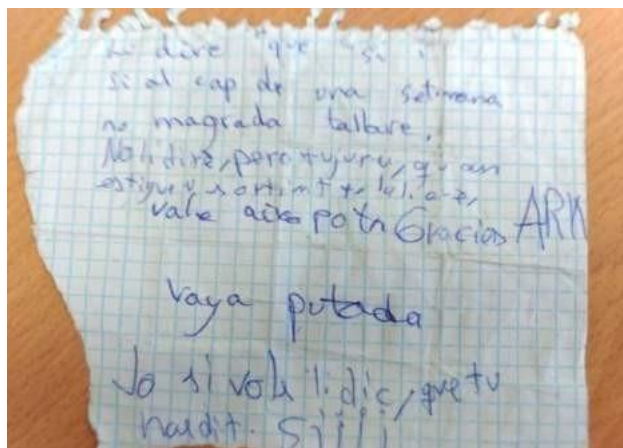 li dire que si i
si al cap de una setmana
no magrada tallare.
No li dire, pero tu juru, quan
vale aixo pots Gracias ARN
Vaya putada
Jo si vols li dic, que tu
hasdit. Siiii